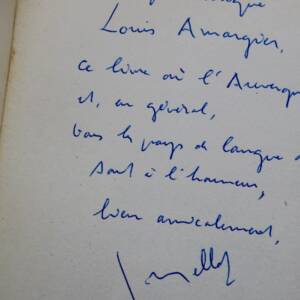 Louis Amargier,
ce livre où l'Auvergne
et, en général,
tous les pays de langue d
sont à l'honneur,
bien amicalement,